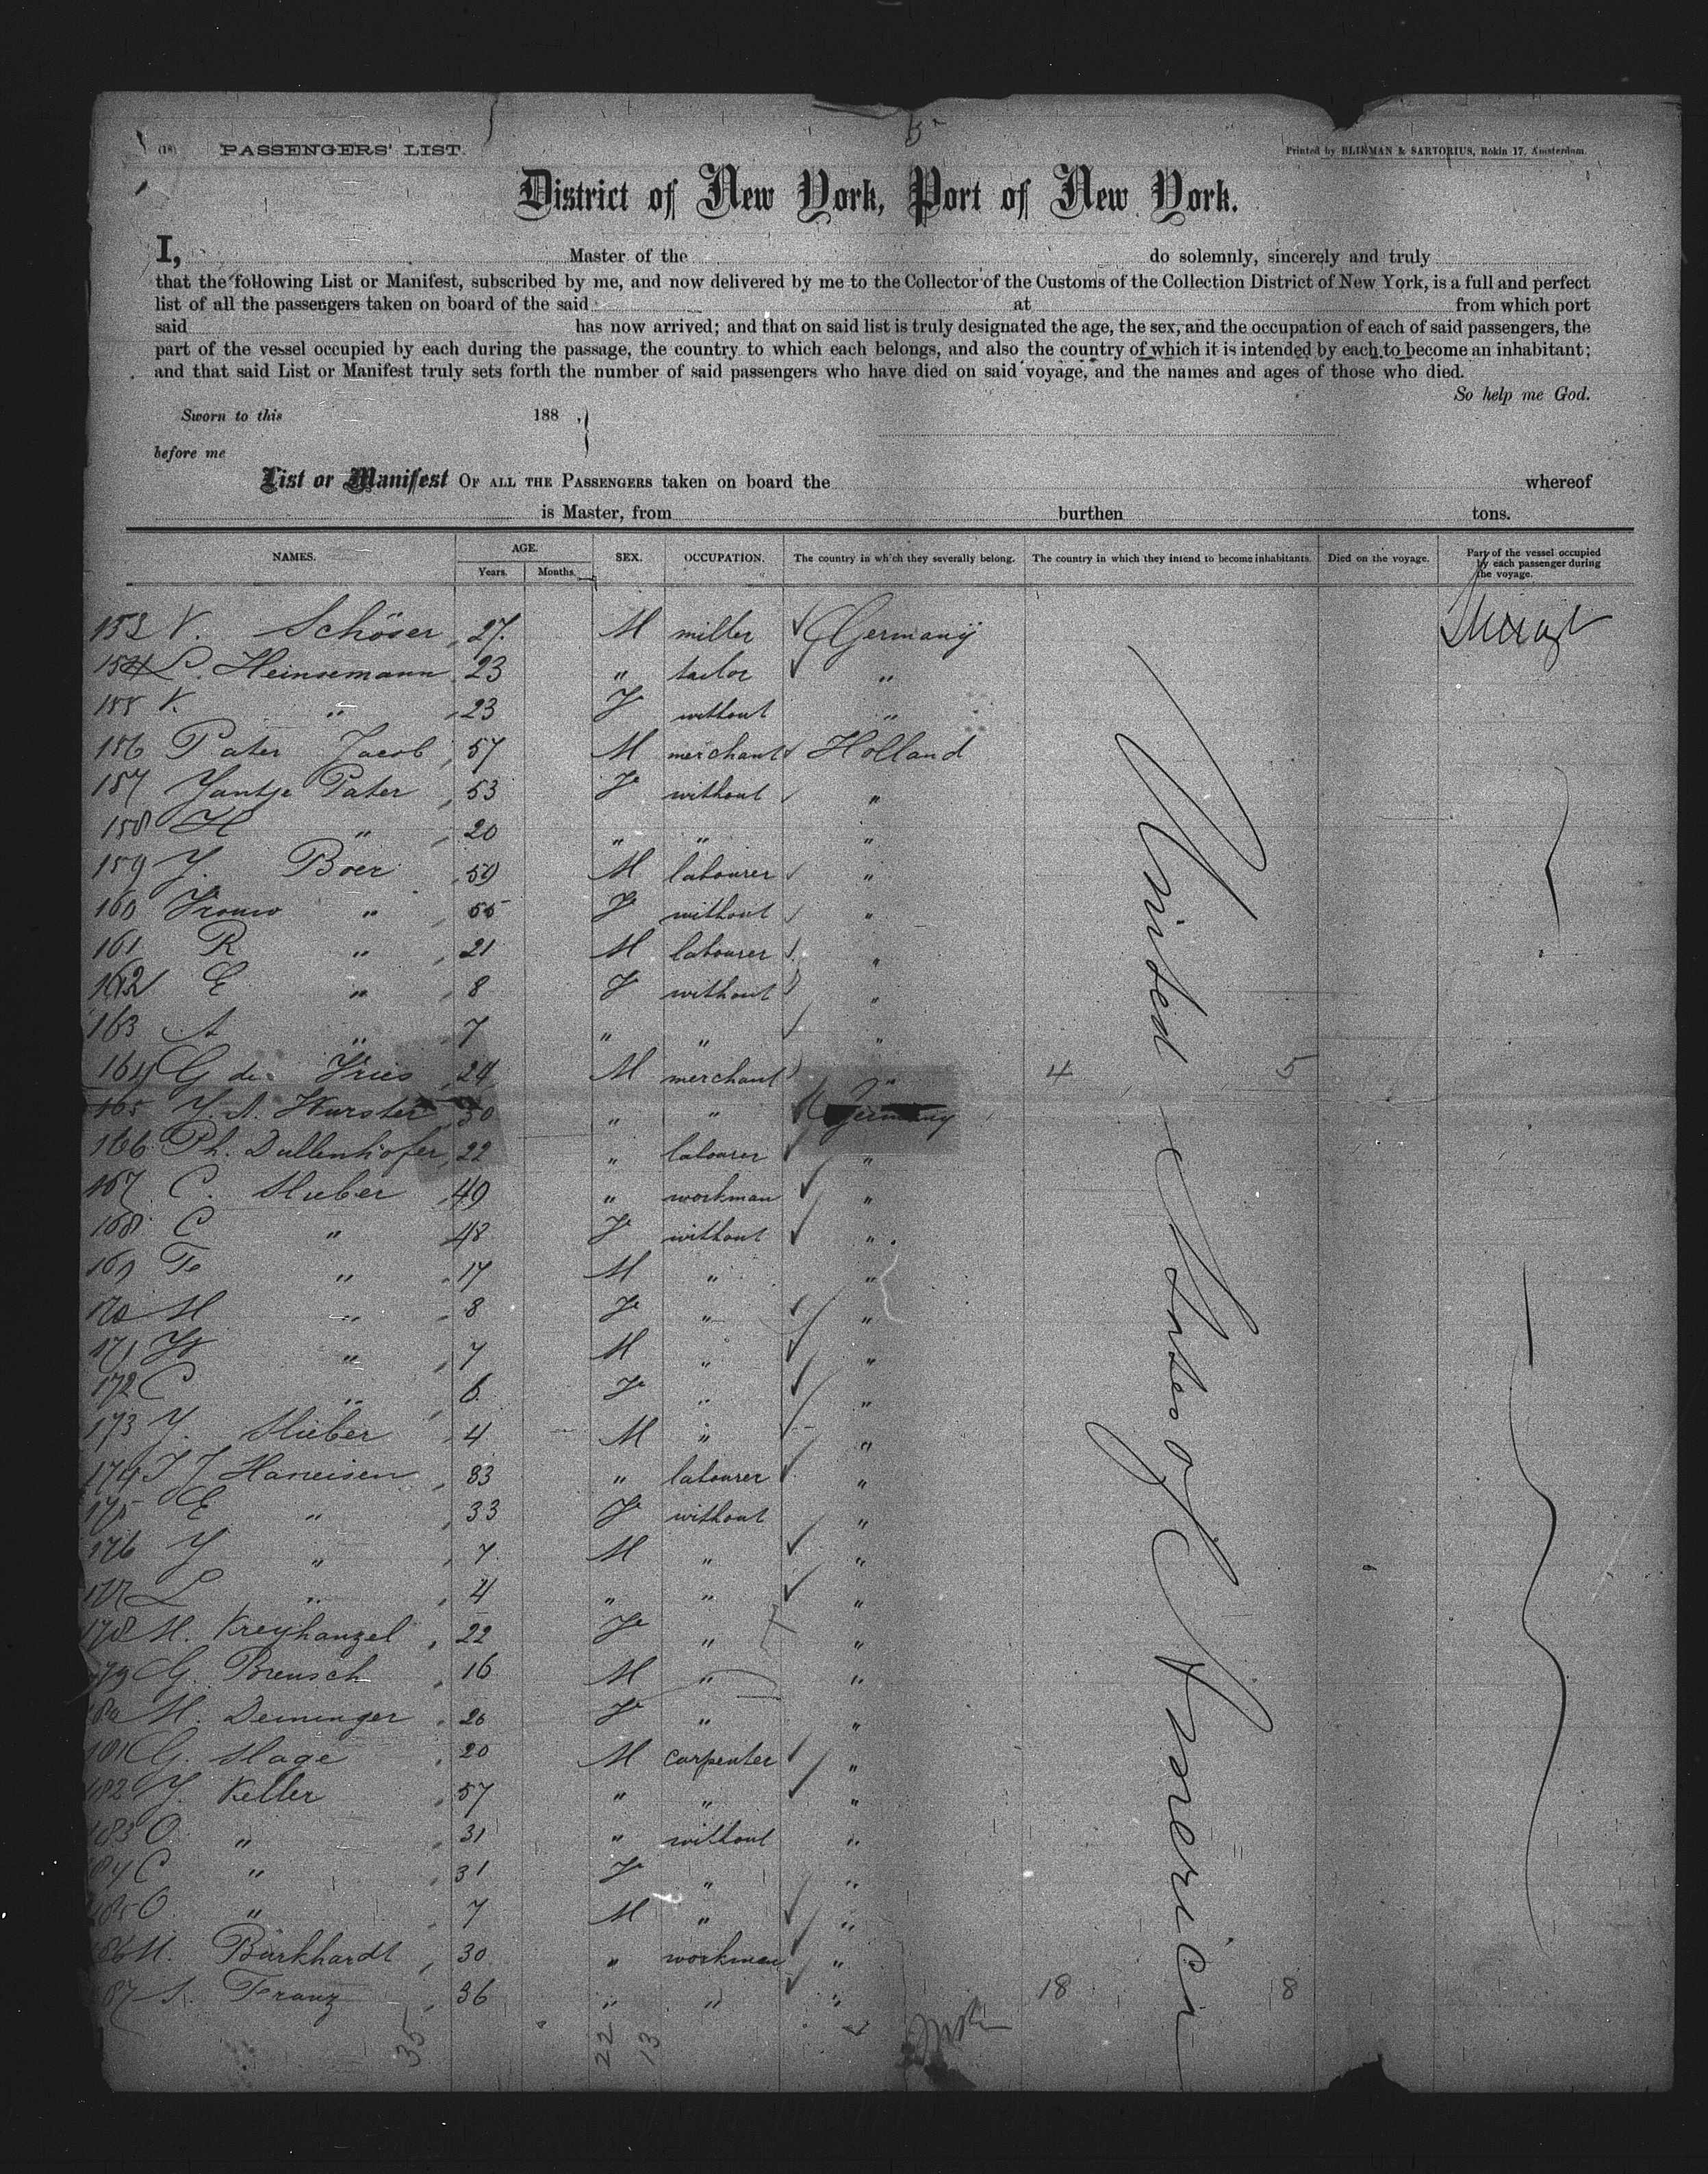 5
(18) PASSENGERS' LIST.
Printed by BLIKMAN & SARTORIUS, Rokin 17, Amsterdam.
District of New York, Port of New York.
I, Master of the do solemnly, sincerely and truly
that the following List or Manifest, subscribed by me, and now delivered by me to the Collector of the Customs of the Collection District of New York, is a full and perfect
list of all the passengers taken on board of the said at from which port
said has now arrived; and that on said list is truly designated the age, the sex, and the occupation of each of said passengers, the
part of the vessel occupied by each during the passage, the country to which each belongs, and also the country of which it is intended by each to become an inhabitant;
and that said List or Manifest truly sets forth the number of said passengers who have died on said voyage, and the names and ages of those who died.
So help me God.
Sworn to this 188 .
before me
List or Manifest OF ALL THE PASSENGERS taken on board the whereof
is Master, from burthen tons.
NAMES. AGE. SEX. OCCUPATION. The country in which they severally belong. The country in which they intend to become inhabitants. Died on the voyage. Part of the vessel occupied by each passenger during the voyage.
Years. Months.
153 V. Schöser 27 M miller Germany
154 L. Heinsemann 23 " tailor "
155 V. " 23 F without "
156 Pater Jacob 57 M merchant Holland
157 Jantje Pater 53 F without "
158 H " 20 " " "
159 J. Boer 59 M labourer "
160 Vrouw " 55 F without "
161 R " 21 M labourer "
162 E " 8 F without "
163 A " 7 " " "
164 G de Vries 24 M merchant " 4 5
165 J. A. Wurster 30 " " Germany
166 Ph. Dullenhofer 22 " labourer "
167 C. Hieber 49 " workman "
168 C " 48 F without "
169 Fe " 17 M " "
170 M " 8 F " "
171 W " 7 M " "
172 C " 6 F " "
173 J. Hieber 4 M " "
174 J J Haneisen 33 " labourer "
175 E " 33 F without "
176 J " 7 M " "
177 L " 4 " " "
178 M. Kreyhanzel 22 F " "
179 G. Breusch 16 M " "
180 M. Deininger 20 F " "
181 G. Hage 20 M carpenter "
182 J. Keller 57 " " "
183 O " 31 " without "
184 C " 31 F " "
185 O " 7 M " "
186 M. Burkhardt 30 " workman "
187 S. Franz 36 " " " 18 8
United States of America
35 22 13